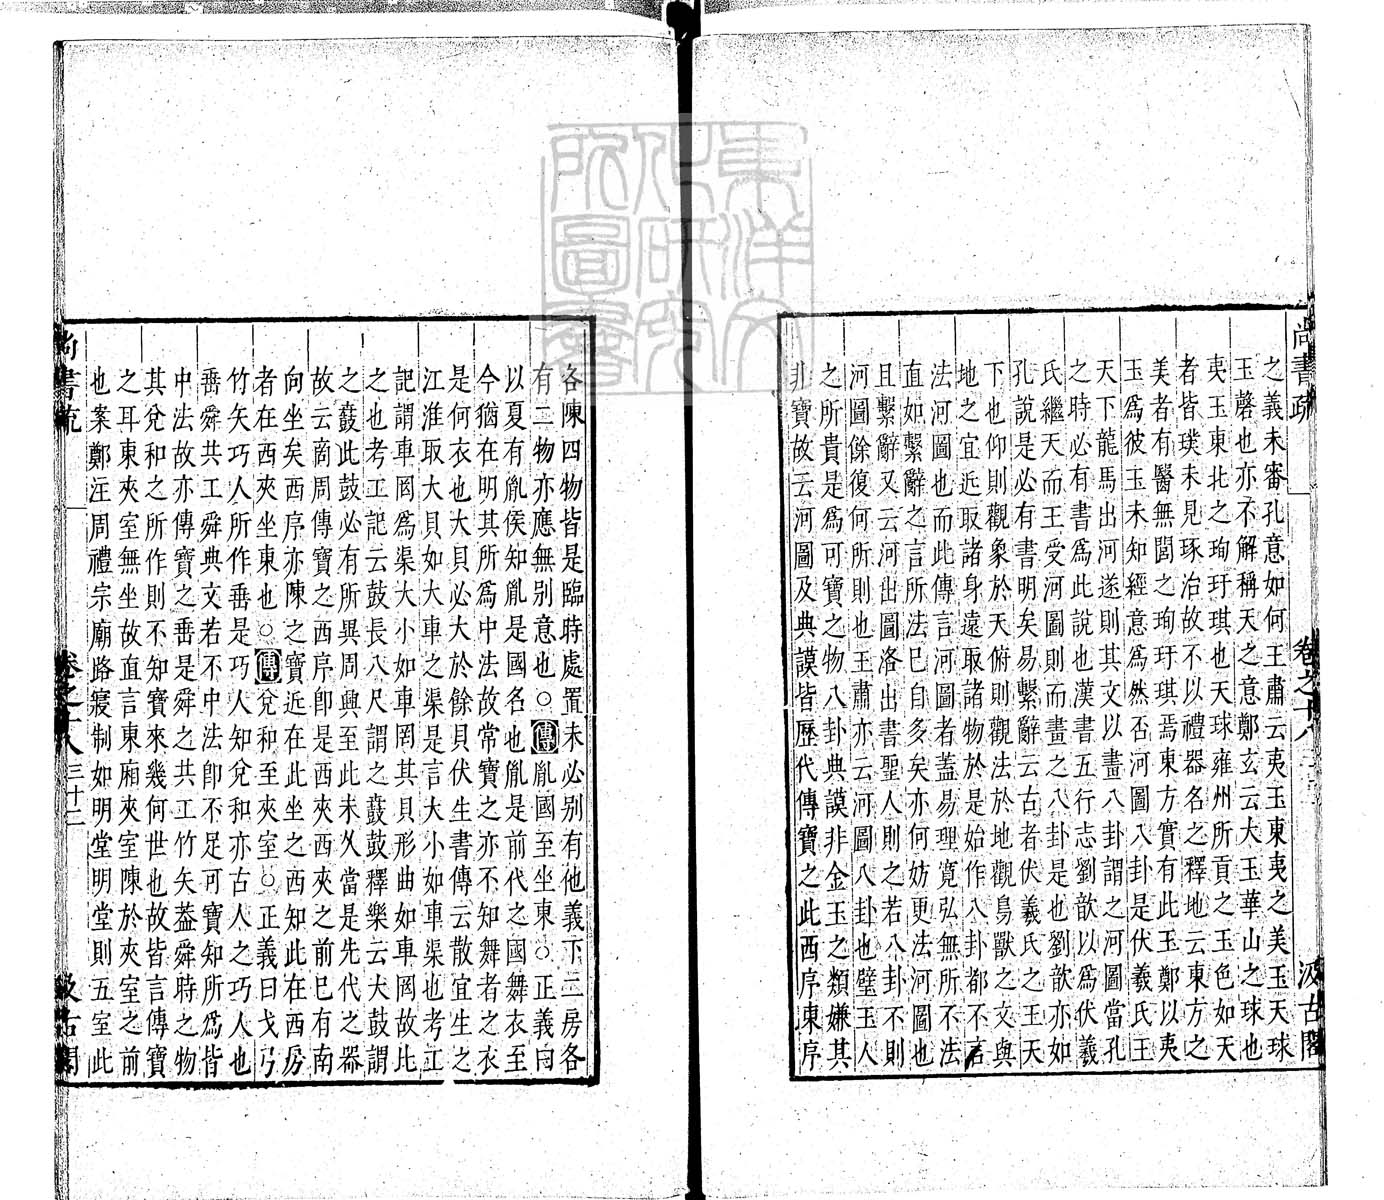 尚書疏
卷之十八
汲古閣
之義未審孔意如何王肅云夷玉東夷之美玉天球
玉磬也亦不解稱天之意鄭玄云大玉華山之球也
夷玉東北之珣玗琪也天球雍州所貢之玉色如天
者皆璞未見琢治故不以禮器名之釋地云東方之
美者有醫無閭之珣玗琪焉東方實有此玉鄭以夷
玉爲彼玉未知經意爲然否河圖八卦是伏羲氏王
天下龍馬出河遂則其文以畫八卦謂之河圖當孔
之時必有書爲此說也漢書五行志劉歆以爲伏羲
氏繼天而王受河圖則而畫之八卦是也劉歆亦如
孔說是必有書明矣易繫辭云古者伏羲氏之王天
下也仰則觀象於天俯則觀法於地觀鳥獸之文與
地之宜近取諸身遠取諸物於是始作八卦都不言
法河圖也而此傳言河圖者蓋易理寬弘無所不法
直如繫辭之言所法已自多矣亦何妨更法河圖也
且繫辭又云河出圖洛出書聖人則之若八卦不則
河圖餘復何所則也王肅亦云河圖八卦也璧玉人
之所貴是爲可寶之物八卦典謨非金玉之類嫌其
非寶故云河圖及典謨皆歷代傳寶之此西序東序
各陳四物皆是臨時處置未必別有他義下二房各
有二物亦應無別意也○傳胤國至坐東○正義曰
以夏有胤侯知胤是國名也胤是前代之國舞衣至
今猶在明其所爲中法故常寶之亦不知舞者之衣
是何衣也大貝必大於餘貝伏生書傳云散宜生之
江淮取大貝如大車之渠是言大小如車渠也考工
記謂車罔爲渠大小如車罔其貝形曲如車罔故比
之也考工記云鼓長八尺謂之鼖鼓釋樂云大鼓謂
之鼖此鼓必有所異周興至此未久當是先代之器
故云商周傳寶之西序卽是西夾西夾之前已有南
向坐矣西序亦陳之寶近在此坐之西知此在西房
者在西夾坐東也○傳兌和至夾室○正義曰戈弓
竹矢巧人所作垂是巧人知兌和亦古人之巧人也
垂舜共工舜典文若不中法卽不足可寶知所爲皆
中法故亦傳寶之垂是舜之共工竹矢蓋舜時之物
其兌和之所作則不知寶來幾何世也故皆言傳寶
之耳東夾室無坐故直言東廂夾室陳於夾室之前
也案鄭注周禮宗廟路寢制如明堂明堂則五室此
尚書疏
卷之十八
三十二
汲古閣